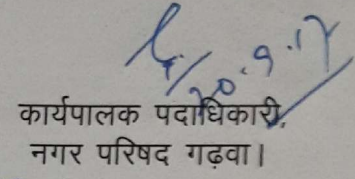 20.9.17
कार्यपालक पदाधिकारी,
नगर परिषद गढ़वा।